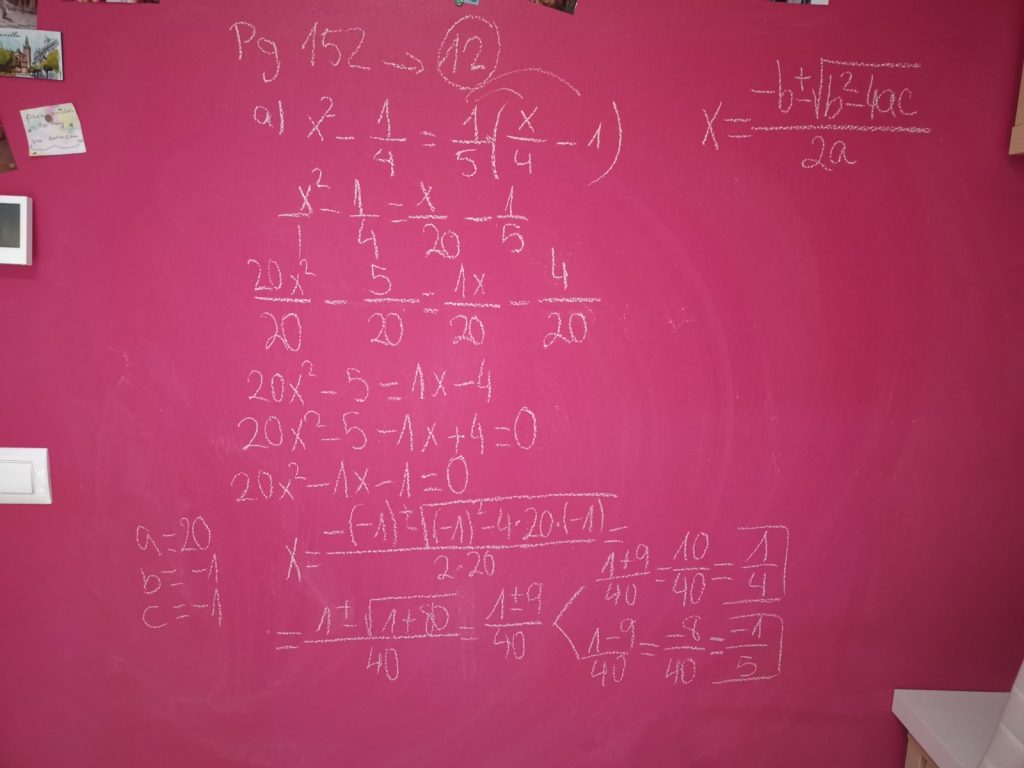 Pg 152 → 12
a) x² - 1/4 = 1/5 · (x/4 - 1)
x = (-b ± √(b² - 4ac))/2a
x²/1 - 1/4 = x/20 - 1/5
20x²/20 - 5/20 = 1x/20 - 4/20
20x² - 5 = 1x - 4
20x² - 5 - 1x + 4 = 0
20x² - 1x - 1 = 0
a = 20
b = -1
c = -1
x = (-(-1) ± √((-1)² - 4 · 20 · (-1)))/(2 · 20) =
= (1 ± √(1 + 80))/40 = (1 ± 9)/40
(1 + 9)/40 = 10/40 = 1/4
(1 - 9)/40 = -8/40 = -1/5